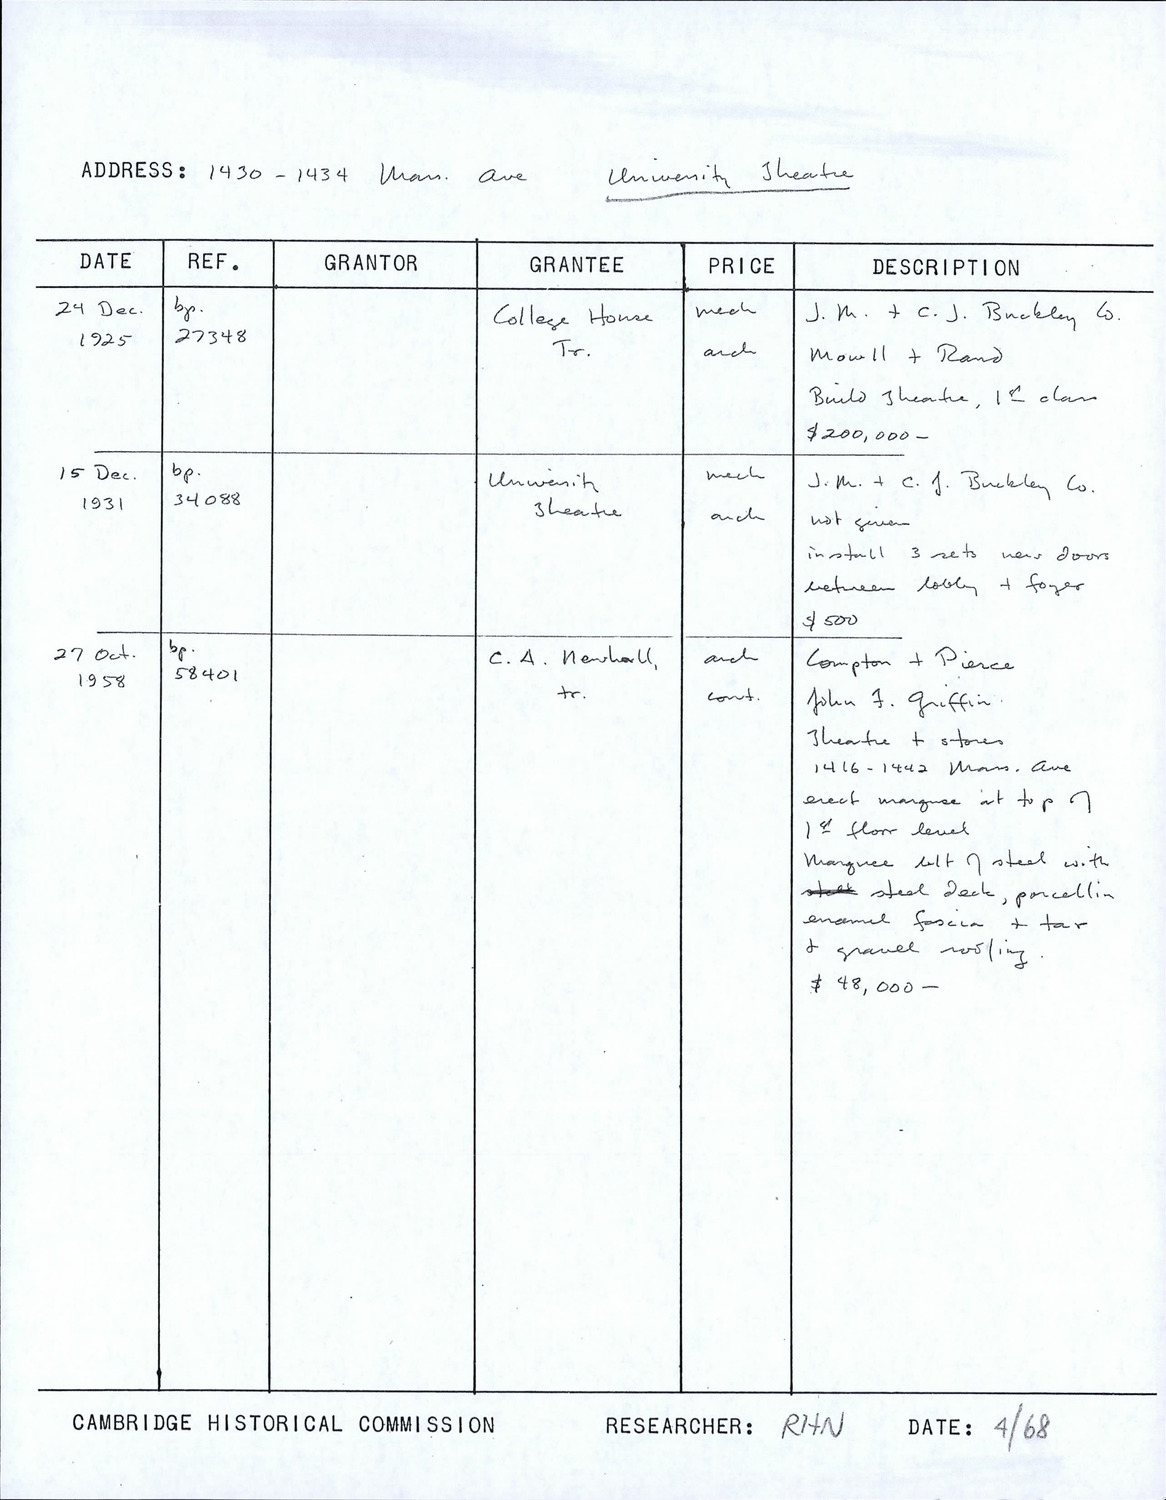 ADDRESS: 1430 - 1434 Mass. Ave University Theatre
DATE REF. GRANTOR GRANTEE PRICE DESCRIPTION
24 Dec. 1925
bp. 27348
College House Tr.
mech
arch
J. M. + C. J. Buckley Co.
Mowll + Rand
Build Theatre, 1st class
$200,000 -
15 Dec. 1931
bp. 34088
University Theatre
mech
arch
J. M. + C. J. Buckley Co.
not given
install 3 sets new doors
between lobby + foyer
$500
27 Oct. 1958
bp. 58401
C. A. Newhall, tr.
arch
cont.
Compton + Pierce
John F. Griffin
Theatre + stores
1416 - 1442 Mass. Ave
erect marquee at top of
1st floor level
Marquee blt of steel with
steel deck, porcellin
enamel fascia + tar
+ gravel roofing.
$ 48,000 -
CAMBRIDGE HISTORICAL COMMISSION RESEARCHER: RHN DATE: 4/68